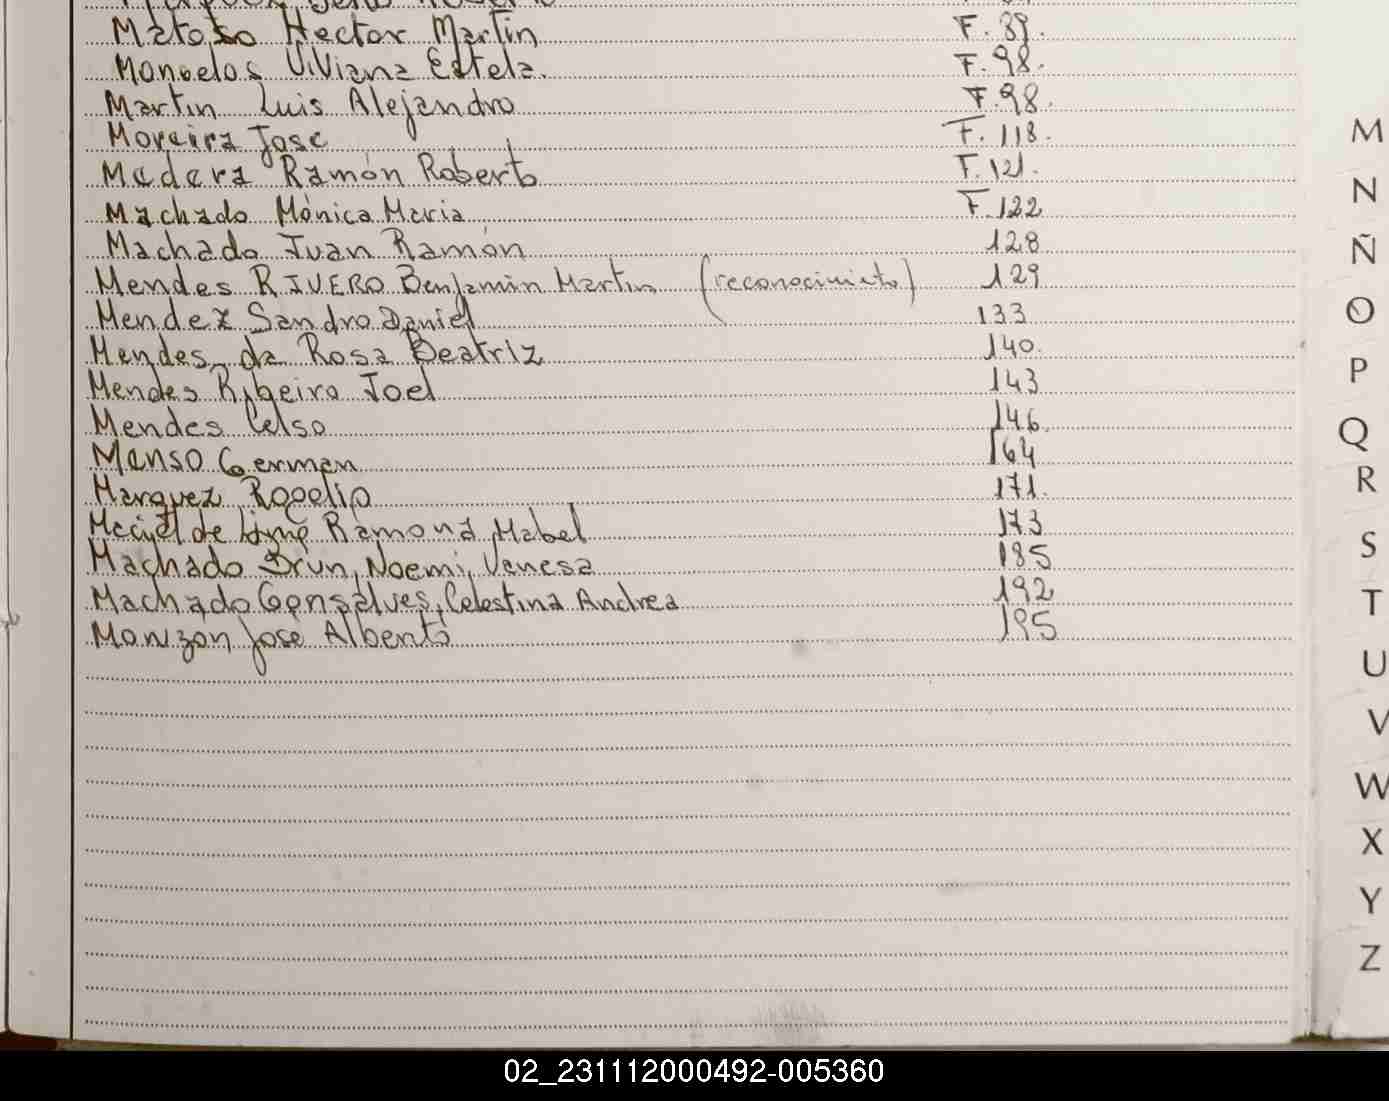 Matoso Hector Martin F. 89.
Mongelos Viviana Estela. F. 98.
Martin Luis Alejandro F. 98.
Moreira Jose F. 118.
Madera Ramón Roberto F. 121.
Machado Mónica Maria F. 122
Machado Juan Ramón 128
Mendes RIVERO Benjamin Martin (reconocimieto) 129
Mendez Sandro Daniel 133
Mendes da Rosa Beatriz 140.
Mendes Ribeiro Joel 143
Mendes Celso 146.
Manso German 164
Marquez Rogelio 171.
Maciel de Ramona Mabel 173
Machado Brun, Noemi, Vanesa 185
Machado Gonsalves, Celestina Andrea 192
Monzon José Alberto 195
M
N
Ñ
O
P
Q
R
S
T
U
V
W
X
Y
Z
02_231112000492-005360